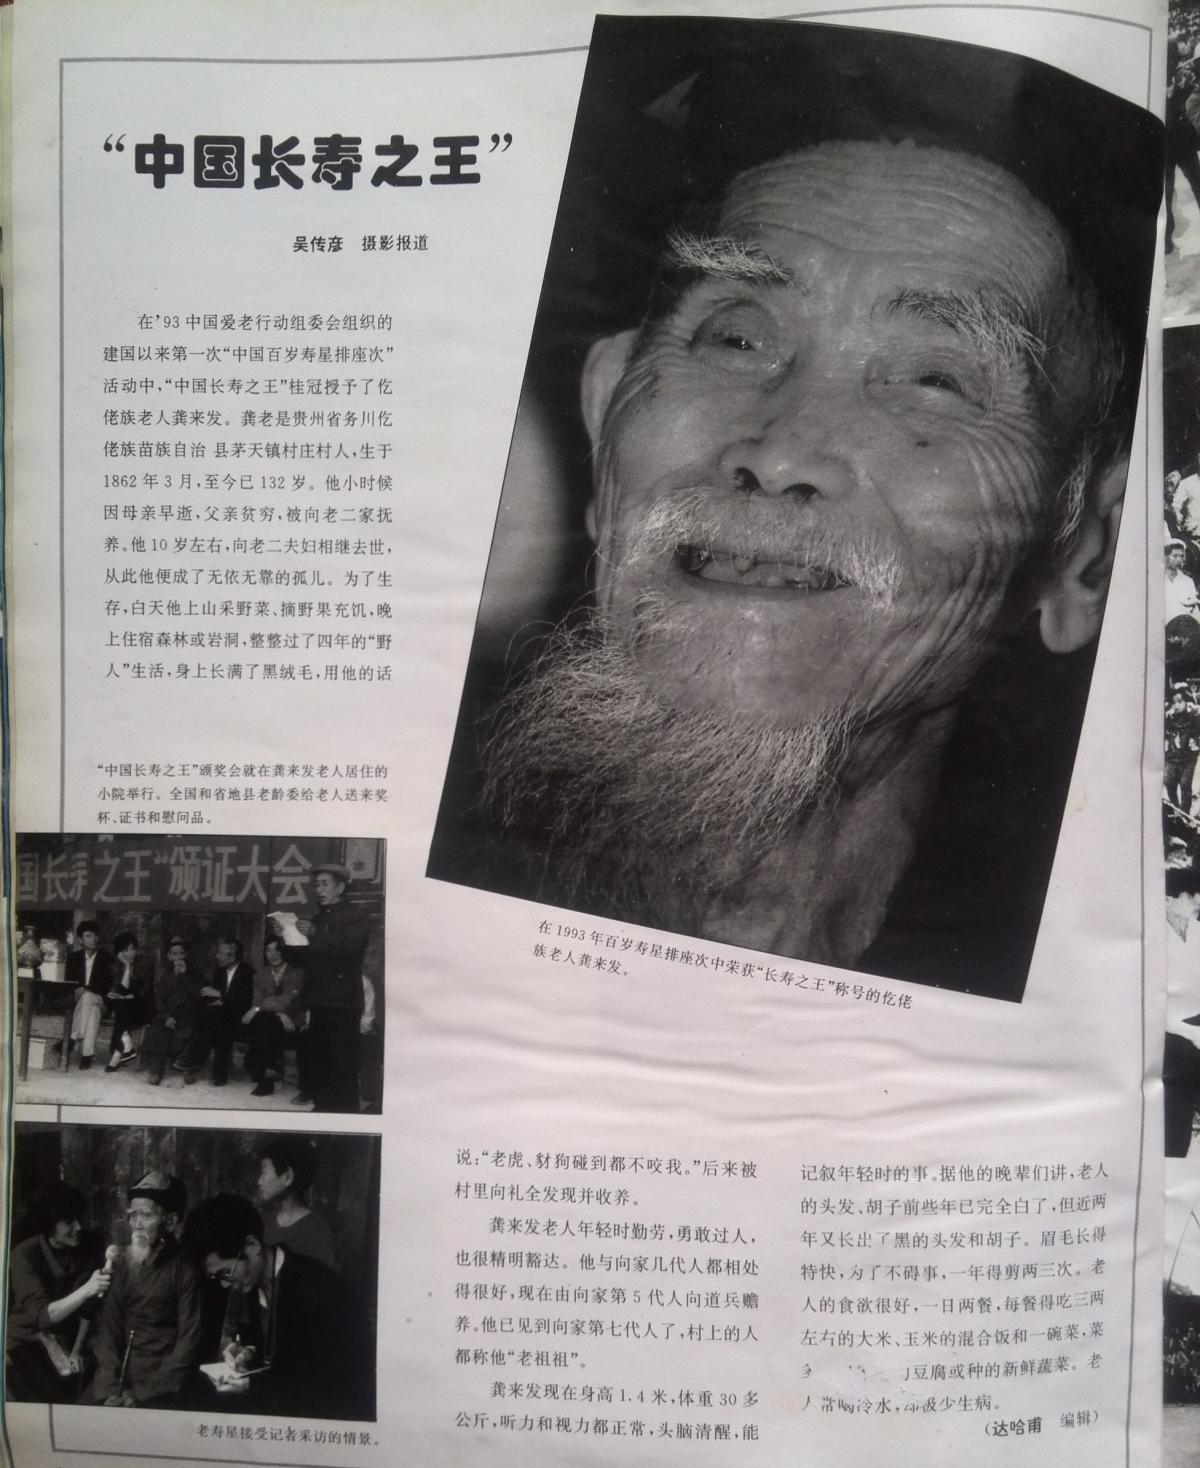 “中国长寿之王”
吴传彦 摄影报道
在’93中国爱老行动组委会组织的
建国以来第一次“中国百岁寿星排座次”
活动中,“中国长寿之王”桂冠授予了仡
佬族老人龚来发。龚老是贵州省务川仡
佬族苗族自治 县茅天镇村庄村人,生于
1862年3月,至今已132岁。他小时候
因母亲早逝,父亲贫穷,被向老二家抚
养。他10岁左右,向老二夫妇相继去世,
从此他便成了无依无靠的孤儿。为了生
存,白天他上山采野菜、摘野果充饥,晚
上住宿森林或岩洞,整整过了四年的“野
人”生活,身上长满了黑绒毛,用他的话
“中国长寿之王”颁奖会就在龚来发老人居住的
小院举行。全国和省地县老龄委给老人送来奖
杯、证书和慰问品。
国长寿之王”颁证大会
老寿星接受记者采访的情景。
在1993年百岁寿星排座次中荣获“长寿之王”称号的仡佬
族老人龚来发。
说:“老虎、豺狗碰到都不咬我。”后来被
村里向礼全发现并收养。
龚来发老人年轻时勤劳,勇敢过人,
也很精明豁达。他与向家几代人都相处
得很好,现在由向家第5代人向道兵赡
养。他已见到向家第七代人了,村上的人
都称他“老祖祖”。
龚来发现在身高1.4米,体重30多
公斤,听力和视力都正常,头脑清醒,能
记叙年轻时的事。据他的晚辈们讲,老人
的头发、胡子前些年已完全白了,但近两
年又长出了黑的头发和胡子。眉毛长得
特快,为了不碍事,一年得剪两三次。老
人的食欲很好,一日两餐,每餐得吃三两
左右的大米、玉米的混合饭和一碗菜,菜
豆腐或种的新鲜蔬菜。老
人常喝冷水,却极少生病。
(达哈甫 编辑)